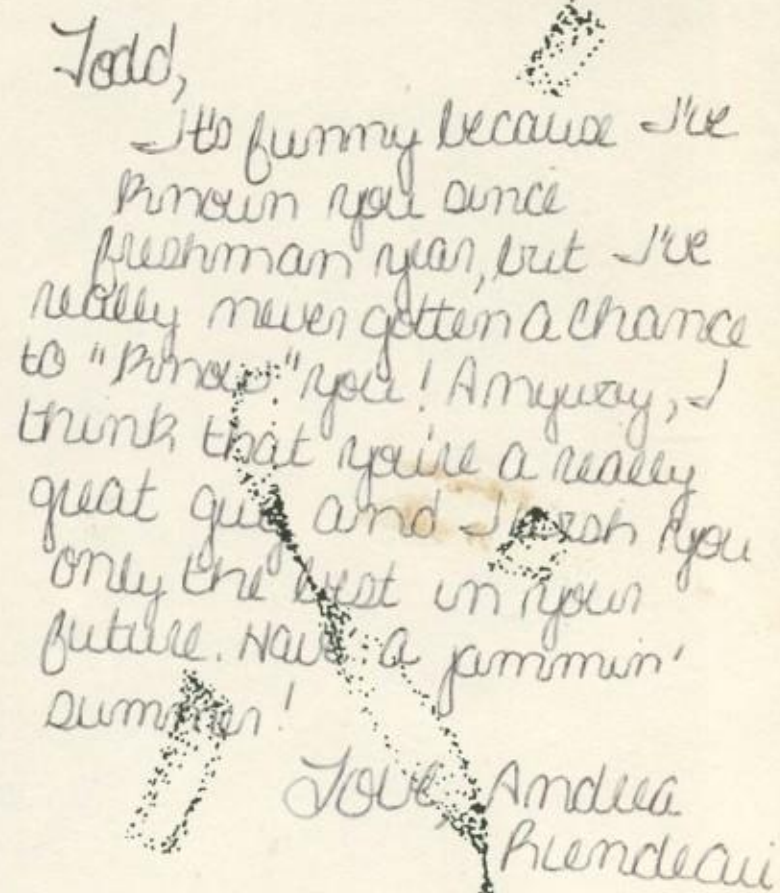 Todd,
It's funny because I've
known you since
freshman year, but I've
really never gotten a chance
to "know" you! Anyway, I
think that you're a really
great guy and I wish you
only the best in your
future. Have a jammin'
summer!
Love, Andrea
Riendeau